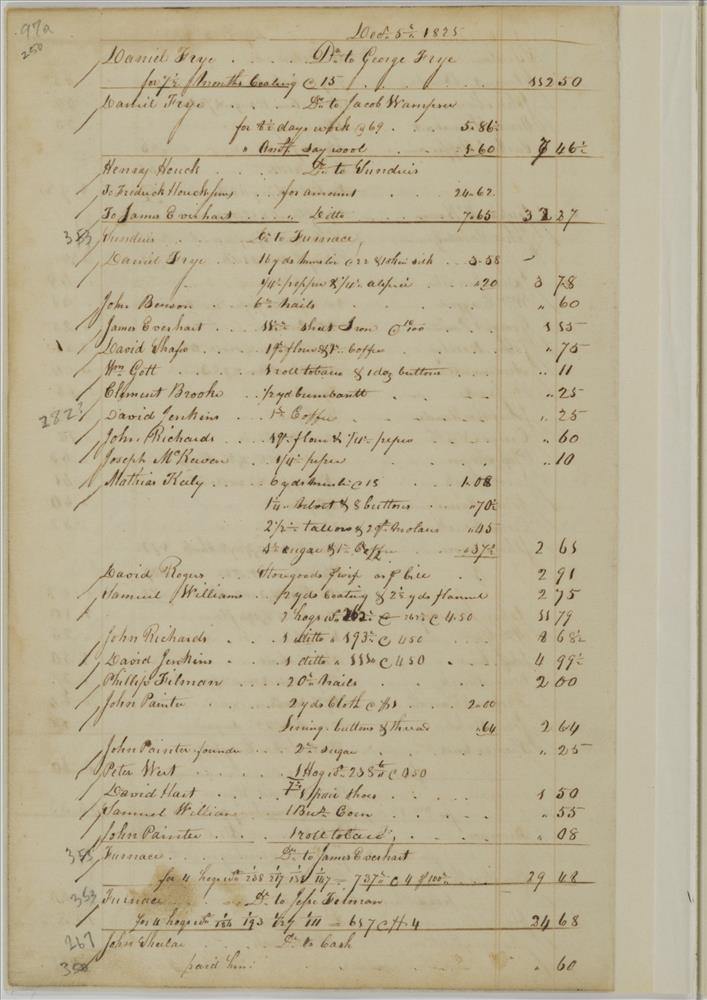 97a
250
Decr. 5th 1825
Daniel Frye . . . . Dr. to George Frye
for 7½ Months Coaling @ 15 . . . 112 50
Daniel Frye . . . Dr. to Jacob Wampner
for 8½ days work @ 69 . . . 5.86½
" Amt. . . wool . . 1.60 7 46½
Henry Houck . . . Dr. to Sundries
To Fredrick Houck . . for amount 24.62
To James Everhart . . " Ditto 7.65 32 27
353 Sundries . . Dr. to Furnace,
Daniel Frye . . . 16 yds muslin @ 22 & 1 skein silk . . 3.58
¼ lb pepper & ¼ lb alspice . . " 20 3 78
John Benson . . . 6 lb nails . . . " 60
James Everhart . . . sheet Iron @ . . . 1 15
David Shafo . . . 1 qr. flour & 1 lb Coffee . . . " 75
Wm Gott . . . 1 roll tobacco & 1 doz buttons . . . " 11
Clement Brooke . . . ½ yd bumbazett . . . " 25
282? David Jenkins . . . 1 lb Coffee . . . " 25
John Richards . . . 1 qr. flour & ¼ lb pepper . . . " 60
Joseph McKeever . . . ¼ lb pepper . . . " 10
Mathias Kely . . . 6 yds muslin @ 18 1.08
1¼ velvet & 8 buttons . . " 70½
2½ lb tallow & 2 qts Molases " 45
lb sugar & 1 lb Coffee . . " 37½ 2 61
David Rogers . . Storegoods pr bill . . 2 91
Samuel Williams . . ½ yds Coating & 2½ yds flannel 2 75
2 hogs wt. 262 lb @ 4.50 11 79
John Richards . . . 1 ditto " 193 lb @ 4.50 8 68½
David Jenkins . . . 1 ditto " 111 lb @ 4.50 . . 4 99½
Phillip Filman . . . 20 lb nails . . . 2 00
John Painter . . . 2 yds Cloth @ . . 2.00
Lining buttons & thread " 64 2 64
John Painter founder . . . 2 lb sugar . . . " 25
Peter Wert . . . 1 Hog wt. 238 lb @ 4.50
David Hart . . . 1 pair shoes . . . 1 50
Samuel Williams . . . 1 Bus. Corn . . . " 55
John Painter . . . 1 roll tobacco, . . . " 08
353 Furnace . . . Dr. to James Everhart
for 4 hogs wt. 238 217 135 147 = 737 lb @ 4 pr 100 lb . . 29 48
353 Furnace . . . Dr. to Jesse Filman
for 4 hogs wt. 184 193 129 111 = 617 @ 4 24 68
267 John Sheelar . . . Dr. to Cash
350 paid him . . . " 60